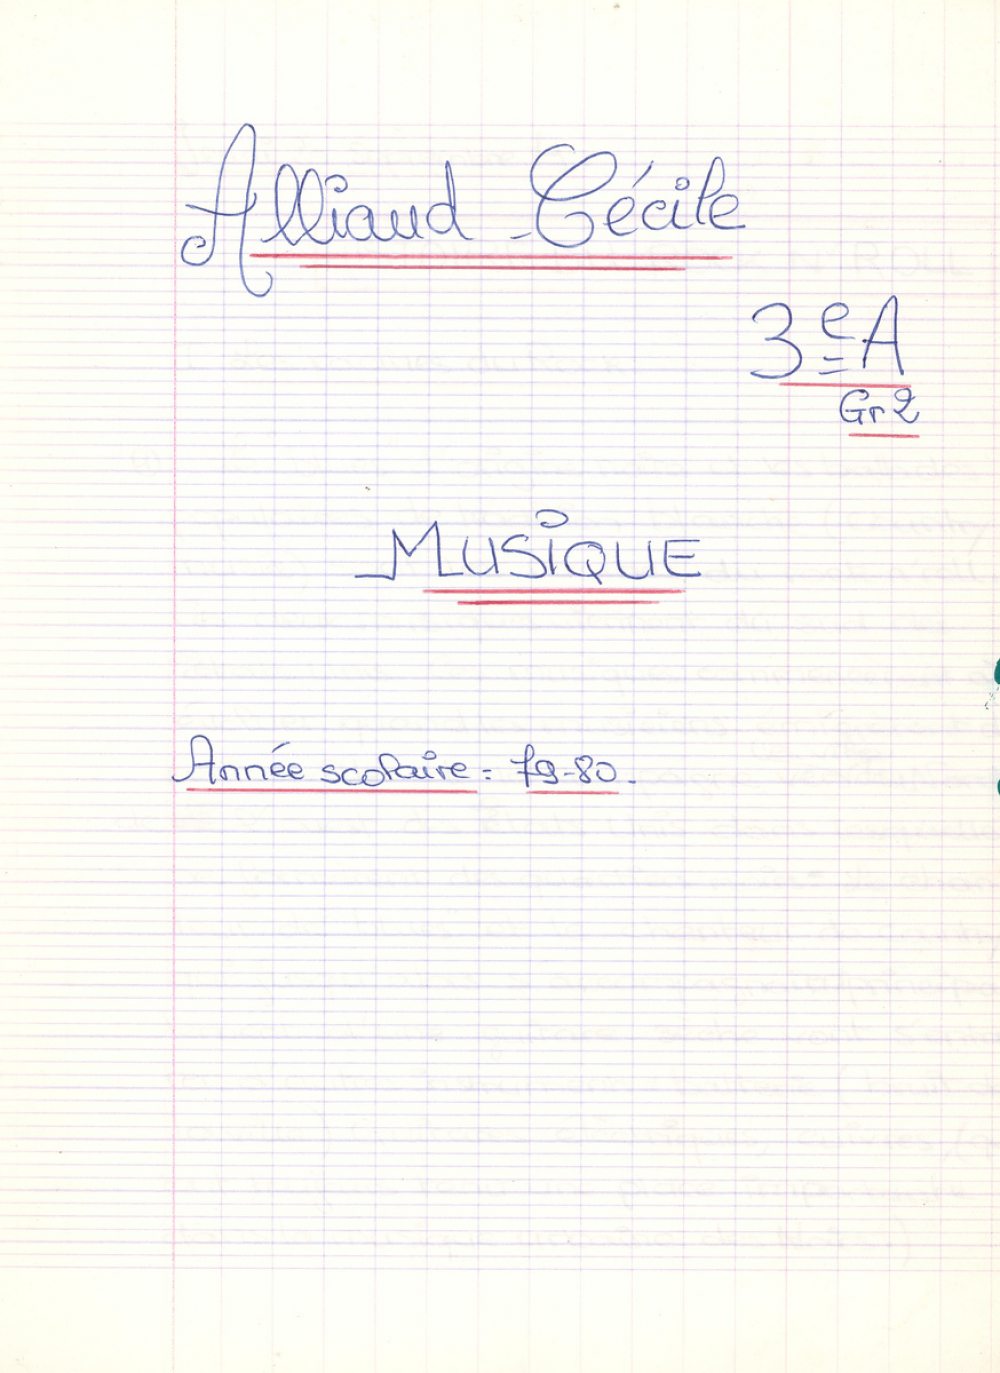 Alliaud Cécile
3e A
Gr 2
MUSIQUE
Année scolaire : 79-80.